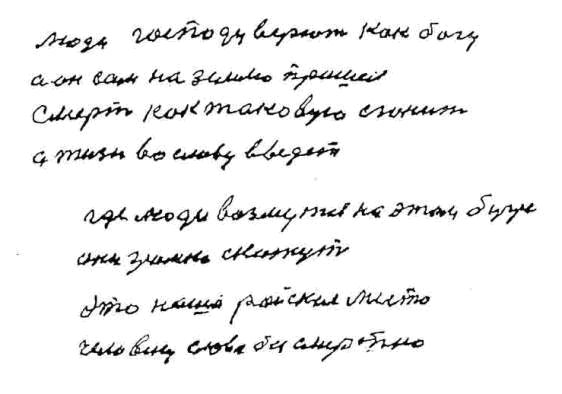 люди господу верют как богу
а он сам на землю пришел
смерт как таковую сгонит
а жизн во славу введет
где люди возмутся на этом буде
они громно скажут
это наша райская место
человеку слова бессмертно